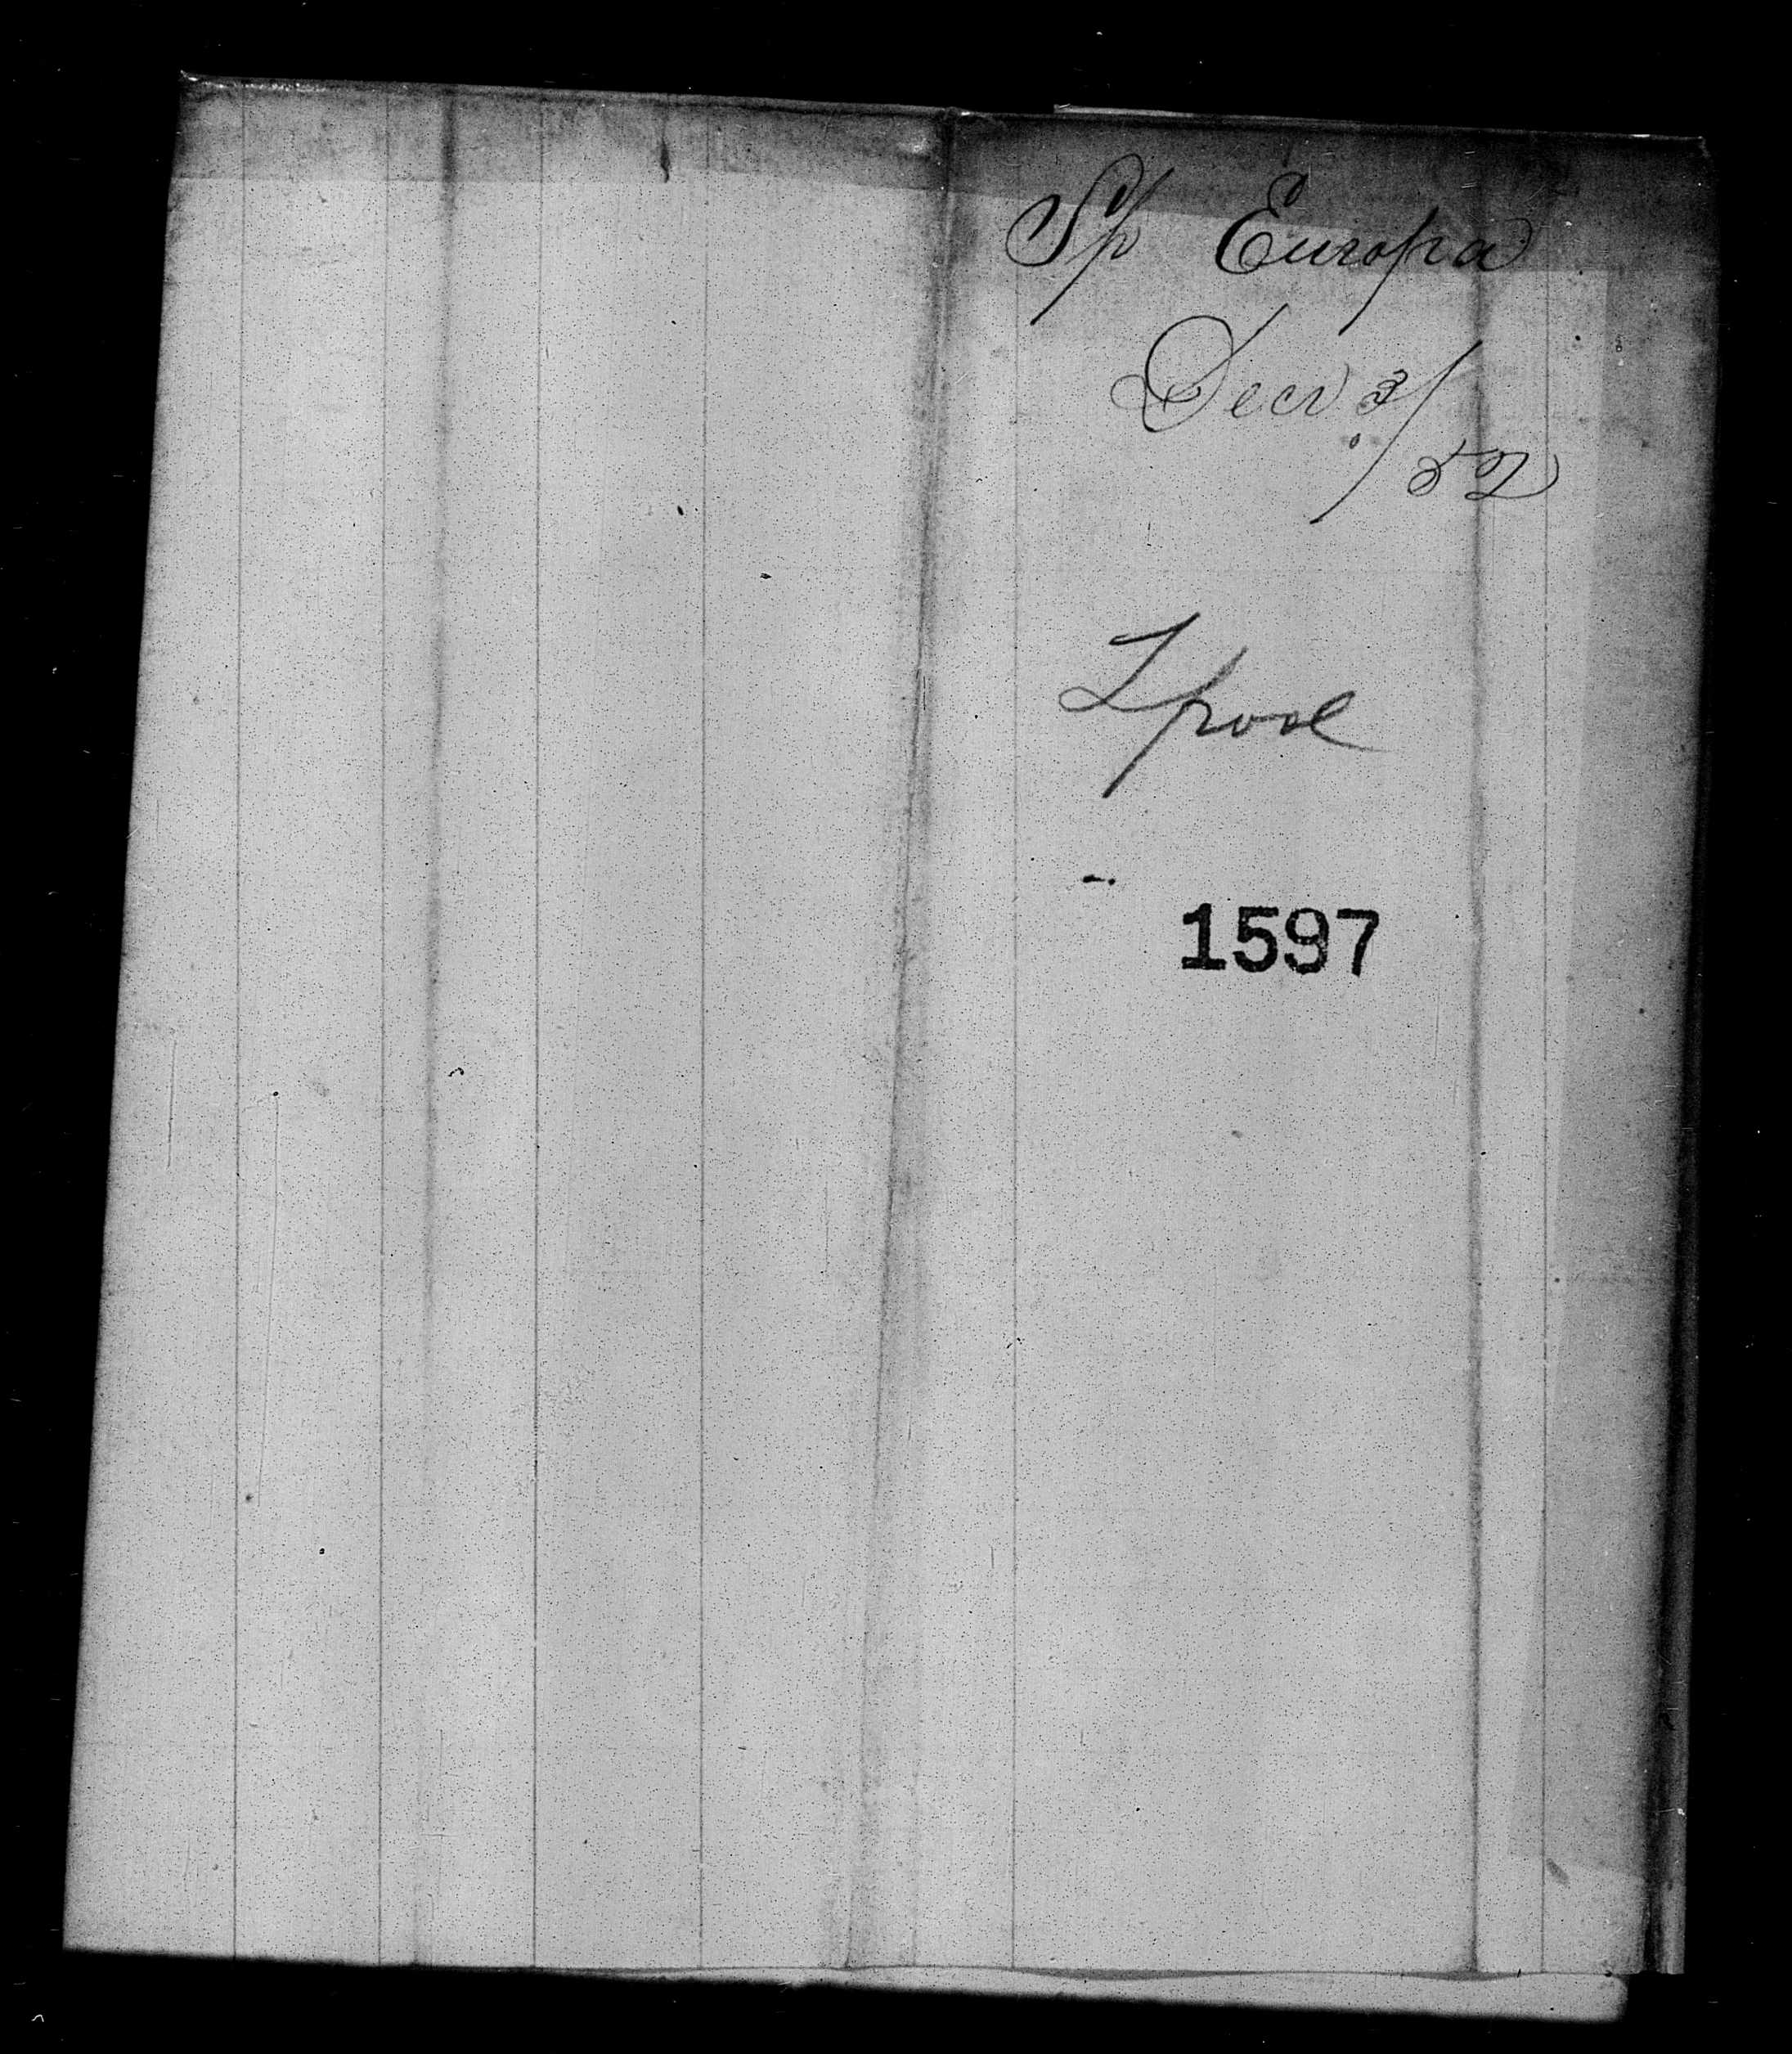 Sp Europa
Decr 3/
52
Lpool
1597